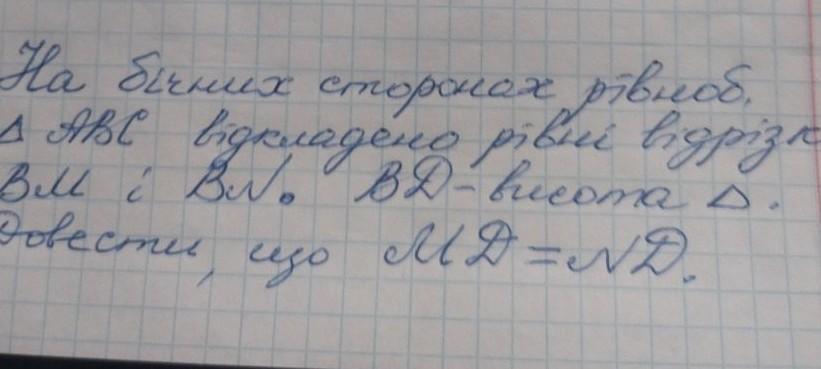 На бічних сторонах рівноб.
△ ABC відкладено рівні відрізк
BM і BN. BD - висота △.
Довести, що MD = ND.